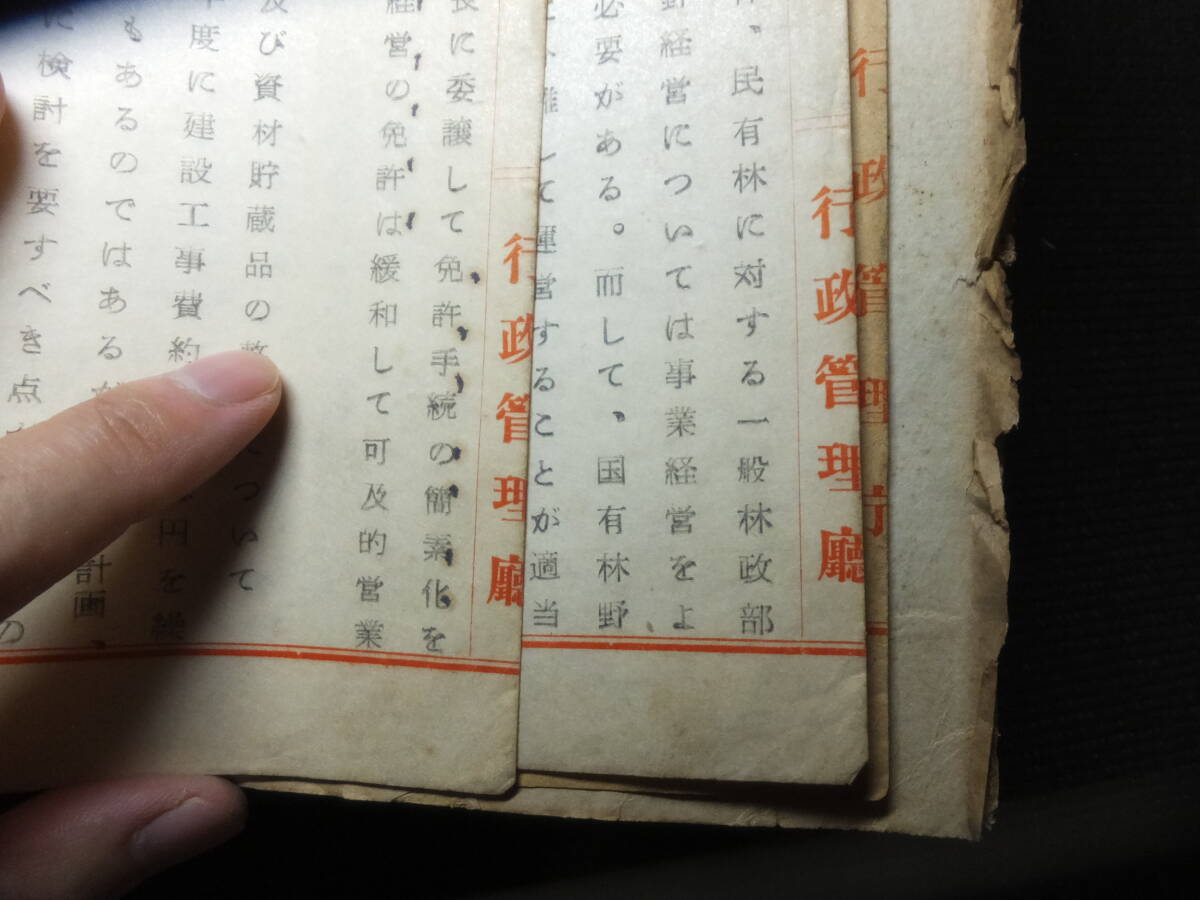 行政管理庁
行政管理廳
、民有林に対する一般林政部
経営については事業経営をよ
必要がある。而して、国有林野
て運営することが適当
行政管理廳
長に委譲して免許、手続の簡素化を
経営の免許は緩和して可及的営業
及び資材貯蔵品の
ついて
年度に建設工事費約
円を
もあるのではあるが
計画、
に検討を要すべき点
の